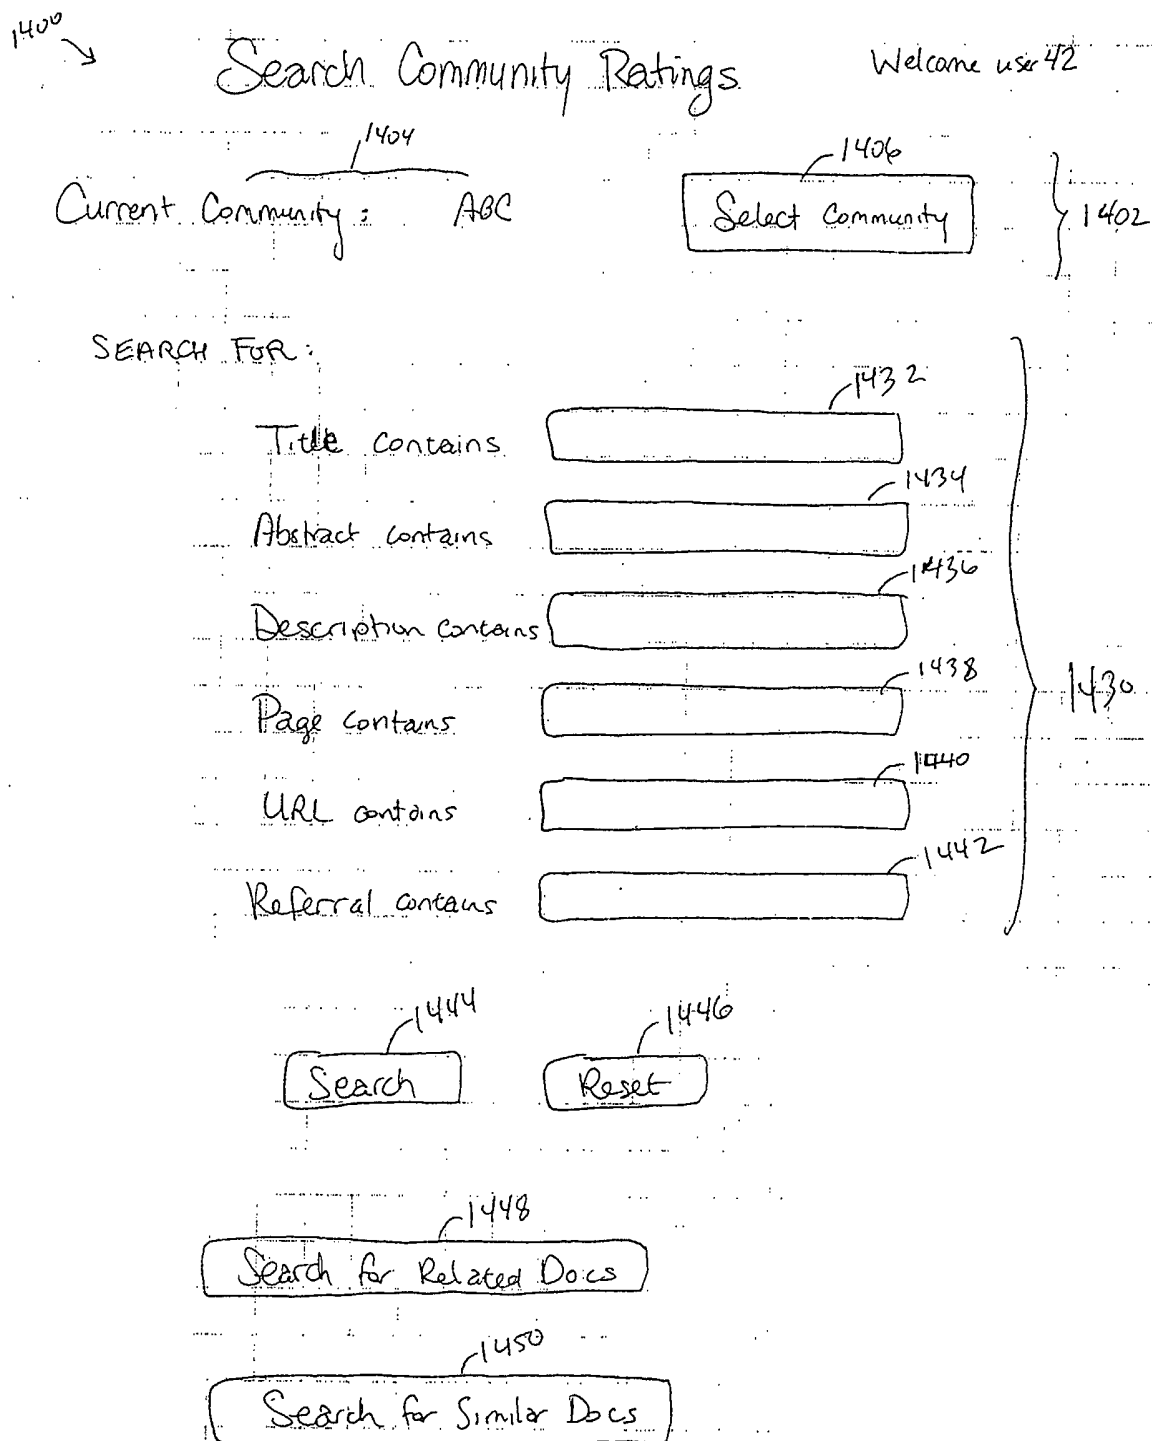 1400
Search Community Ratings Welcome user 42
1404
1406
Current Community: ABC Select Community 1402
SEARCH FOR:
1432
Title contains
1434
Abstract contains
1436
Description contains
1438
Page contains 1430
1440
URL contains
1442
Referral contains
1444 1446
Search Reset
1448
Search for Related Docs
1450
Search for Similar Docs